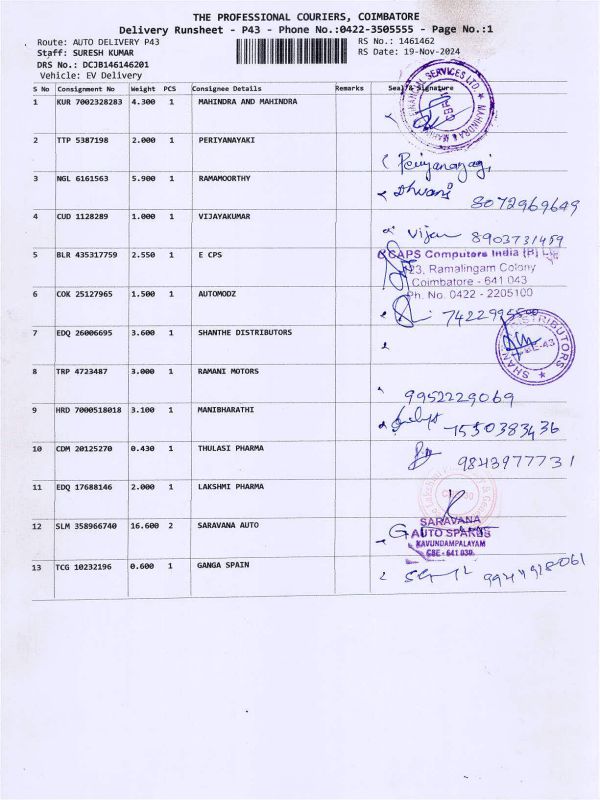 THE PROFESSIONAL COURIERS, COIMBATORE
Delivery Runsheet - P43 - Phone No.:0422-3505555 - Page No.:1
Route: AUTO DELIVERY P43 RS No.: 1461462
Staff: SURESH KUMAR RS Date: 19-Nov-2024
DRS No.: DCJB146146201
Vehicle: EV Delivery
S No Consignment No Weight PCS Consignee Details Remarks Seal & Signature
1 KUR 7002328283 4.300 1 MAHINDRA AND MAHINDRA
2 TTP 5387198 2.000 1 PERIYANAYAKI
Periyanayagi
3 NGL 6161563 5.900 1 RAMAMOORTHY
8072969649
4 CUD 1128289 1.000 1 VIJAYAKUMAR
Vijay 8903731459
5 BLR 435317759 2.550 1 E CPS
CAPS Computers India (P) Ltd
23, Ramalingam Colony
Coimbatore - 641 043
Ph. No. 0422 - 2205100
6 COK 25127965 1.500 1 AUTOMODZ
7 EDQ 26006695 3.600 1 SHANTHE DISTRIBUTORS
8 TRP 4723487 3.000 1 RAMANI MOTORS
9952229069
9 HRD 7000518018 3.100 1 MANIBHARATHI
7550383436
10 CDM 20125270 0.430 1 THULASI PHARMA
9843977731
11 EDQ 17688146 2.000 1 LAKSHMI PHARMA
12 SLM 358966740 16.600 2 SARAVANA AUTO
SARAVANA
AUTO SPARES
KAVUNDAMPALAYAM
CBE - 641 030.
13 TCG 10232196 0.600 1 GANGA SPAIN